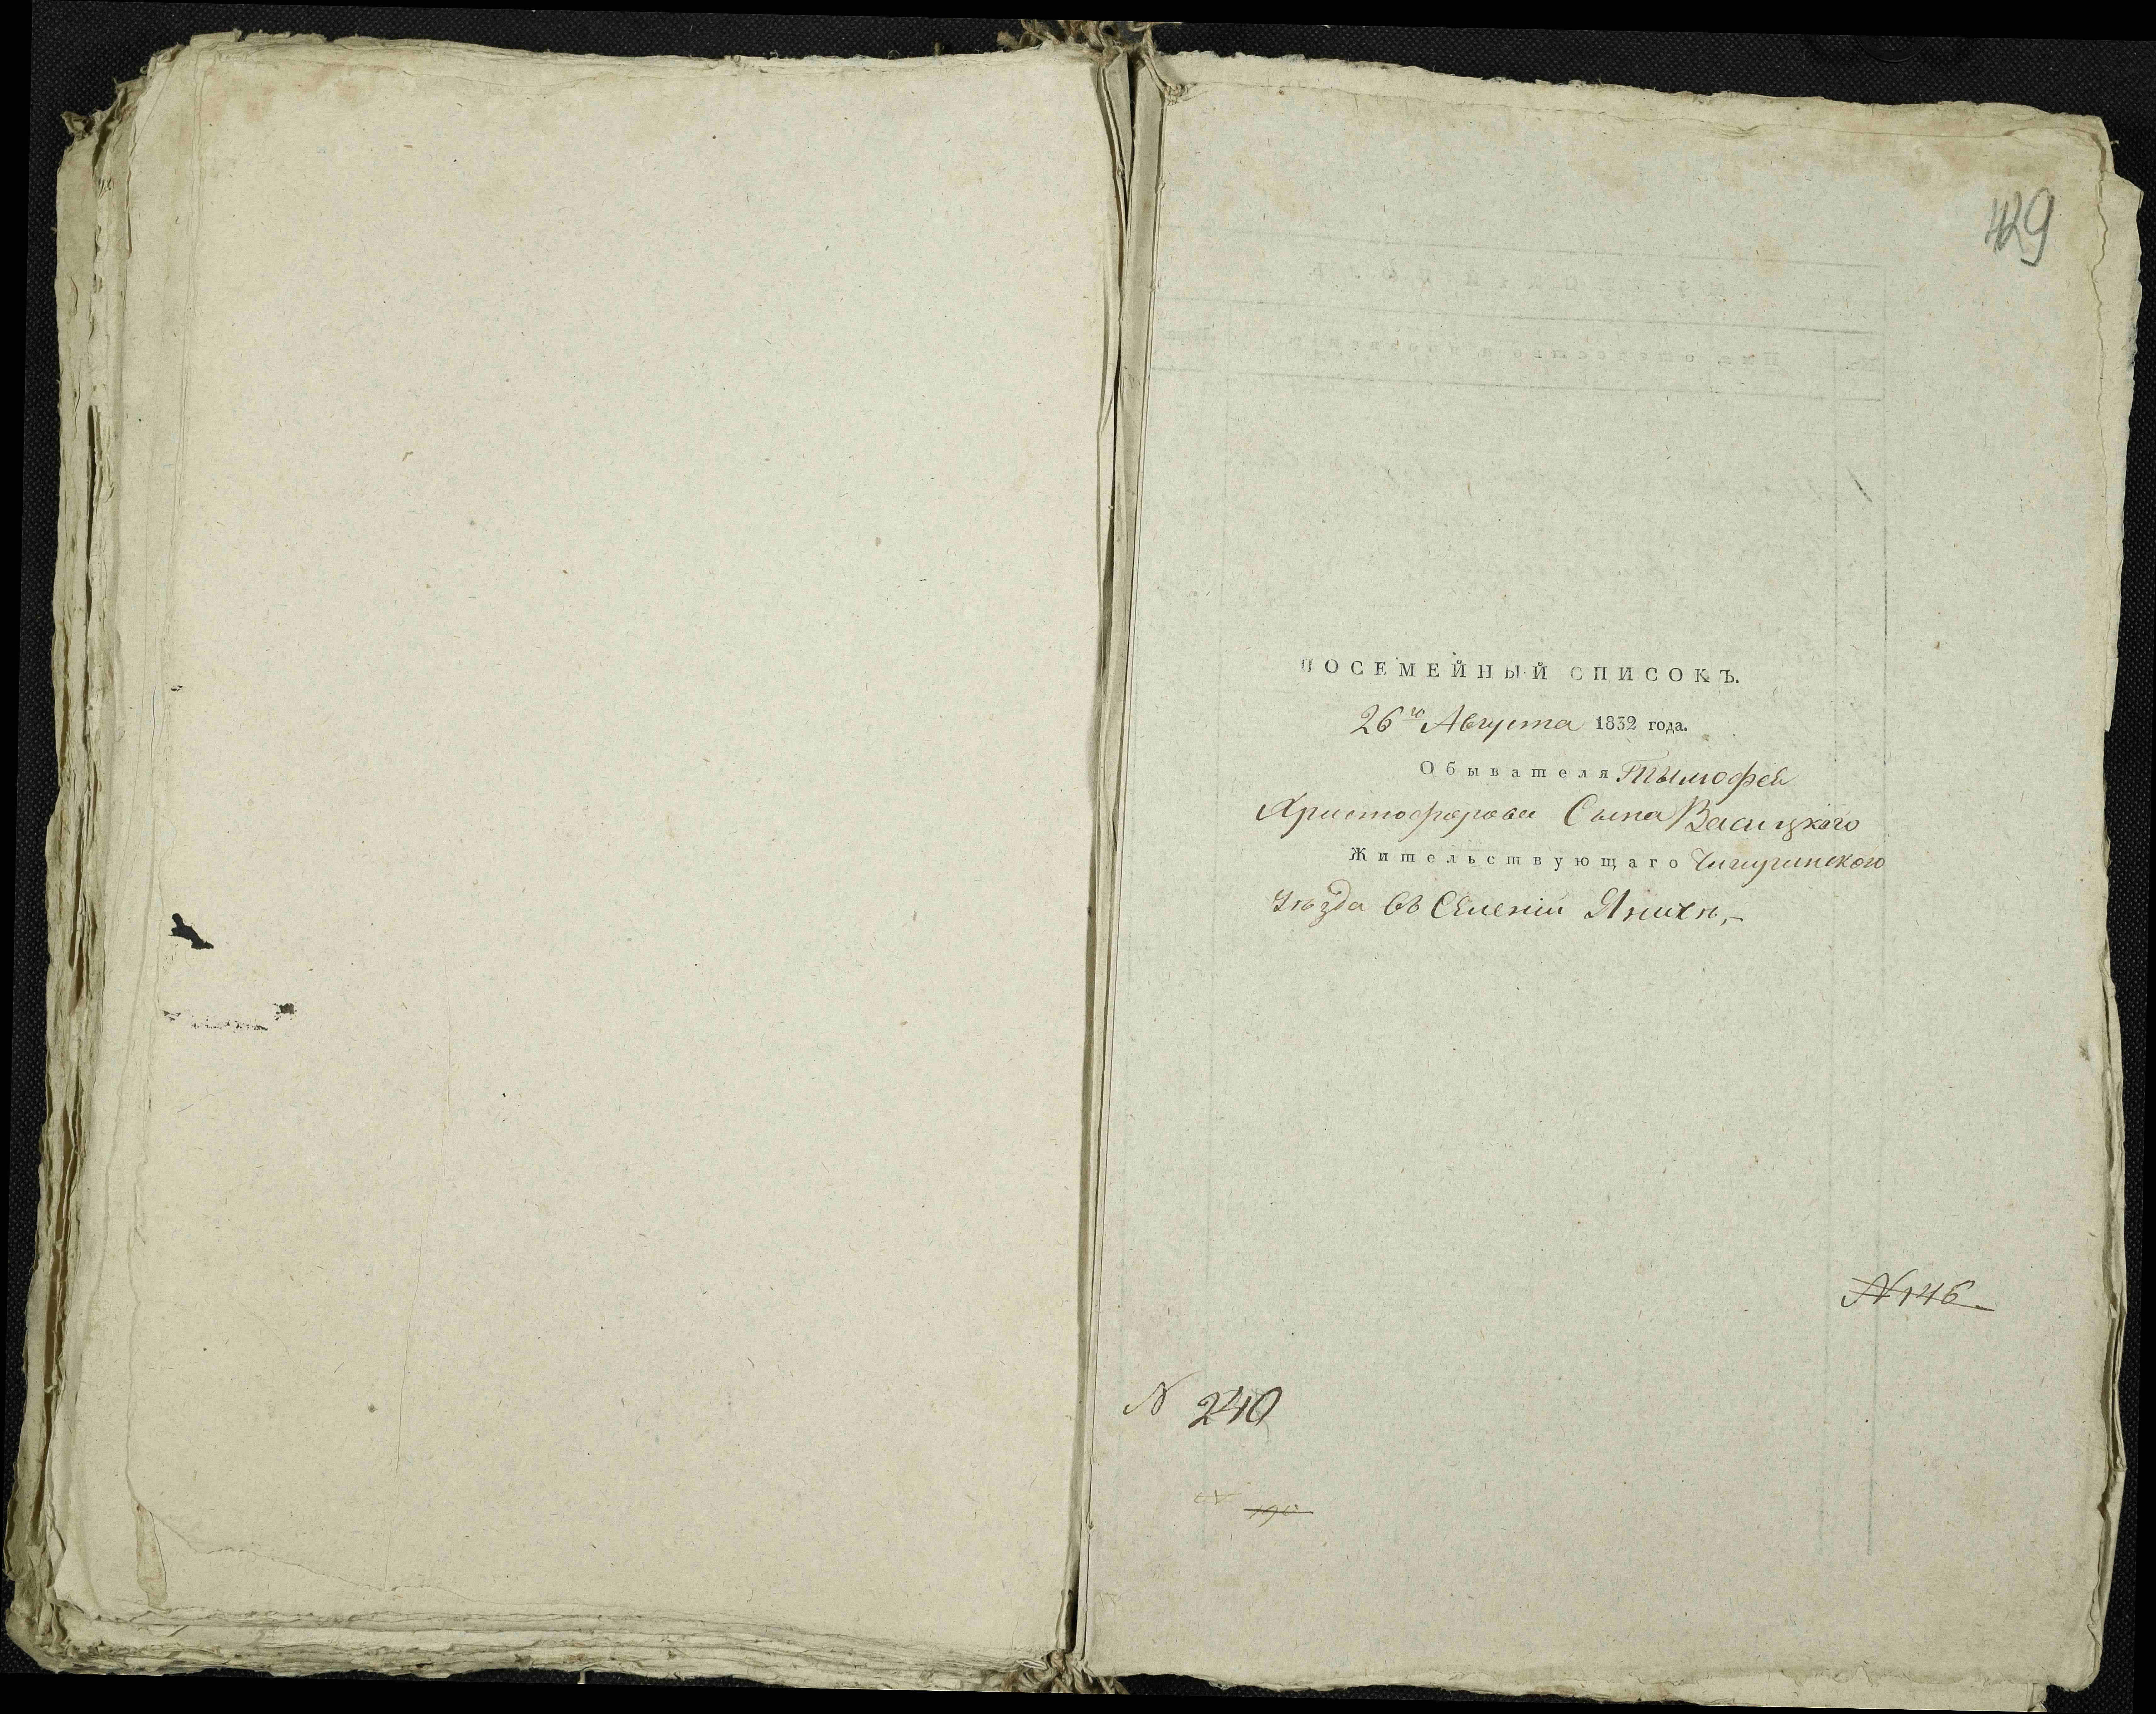 429
ПОСЕМЕЙНЫЙ СПИСОКЪ.
26го Августа 1832 года.
Обывателя Тымофея
Христофорова Сына Васицкого
Жительствующаго Чигиринского
Уѣзда въ Селеніи Яничѣ,-
N 146
N 240
N 190